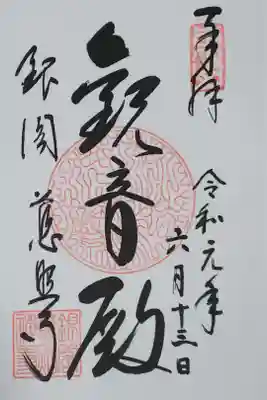 奉拝
令和元年
六月十三日
觀音殿
銀閣 慈照寺